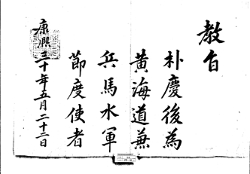 教旨
朴慶後為
黃海道兼
兵馬水軍
節度使者
康熙三十年五月二十二日